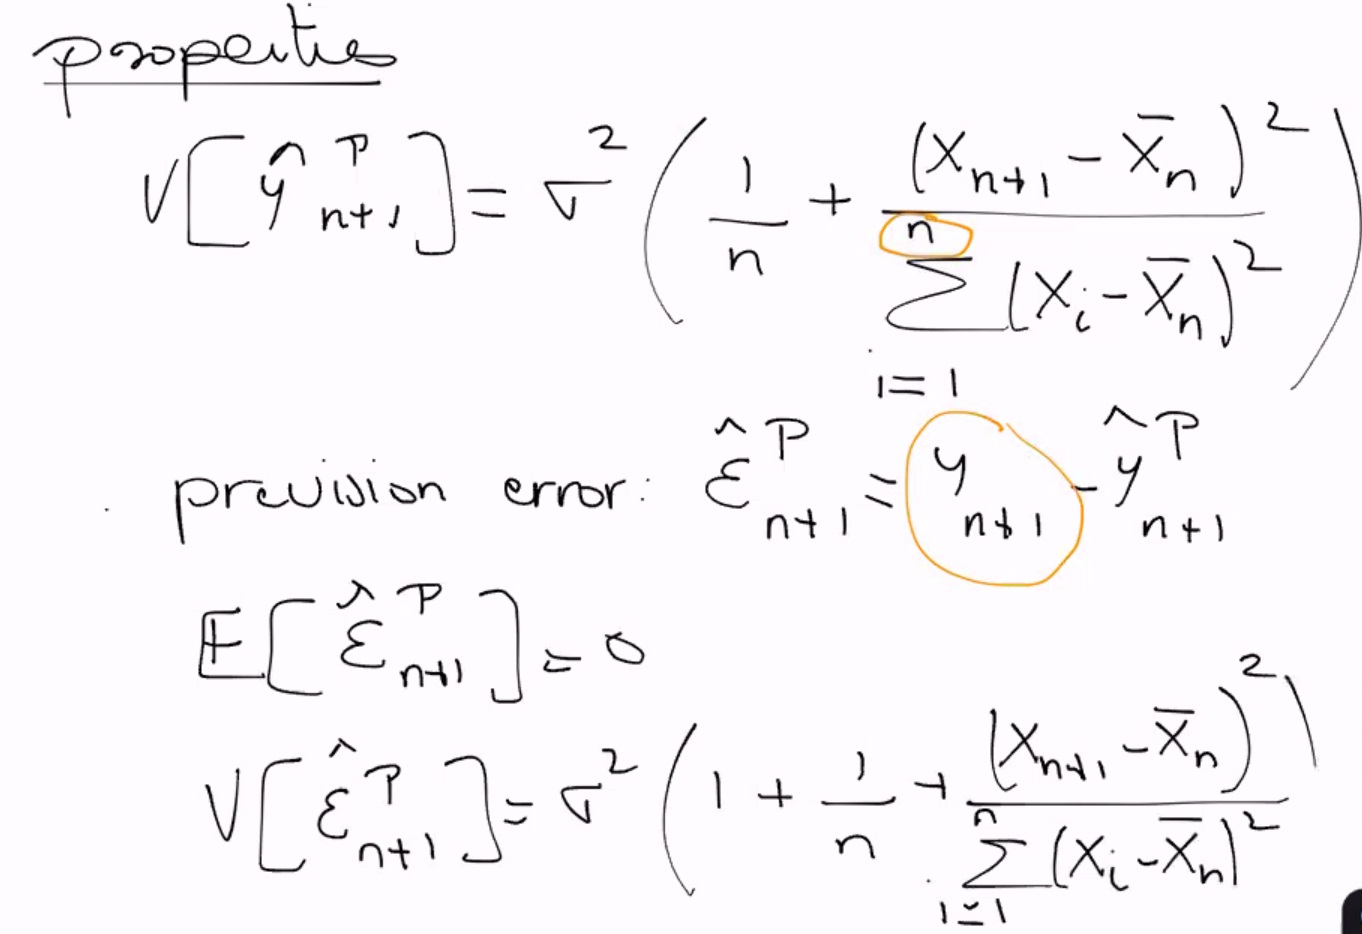 properties
V[ŷᴾₙ₊₁] = σ² ( 1/n + (xₙ₊₁ - x̄ₙ)² / ∑ⁿᵢ₌₁ (xᵢ - x̄ₙ)² )
prevision error: ε̂ᴾₙ₊₁ = yₙ₊₁ - ŷᴾₙ₊₁
E[ε̂ᴾₙ₊₁] = 0
V[ε̂ᴾₙ₊₁] = σ² ( 1 + 1/n + (xₙ₊₁ - x̄ₙ)² / ∑ⁿᵢ₌₁ (xᵢ - x̄ₙ)² )